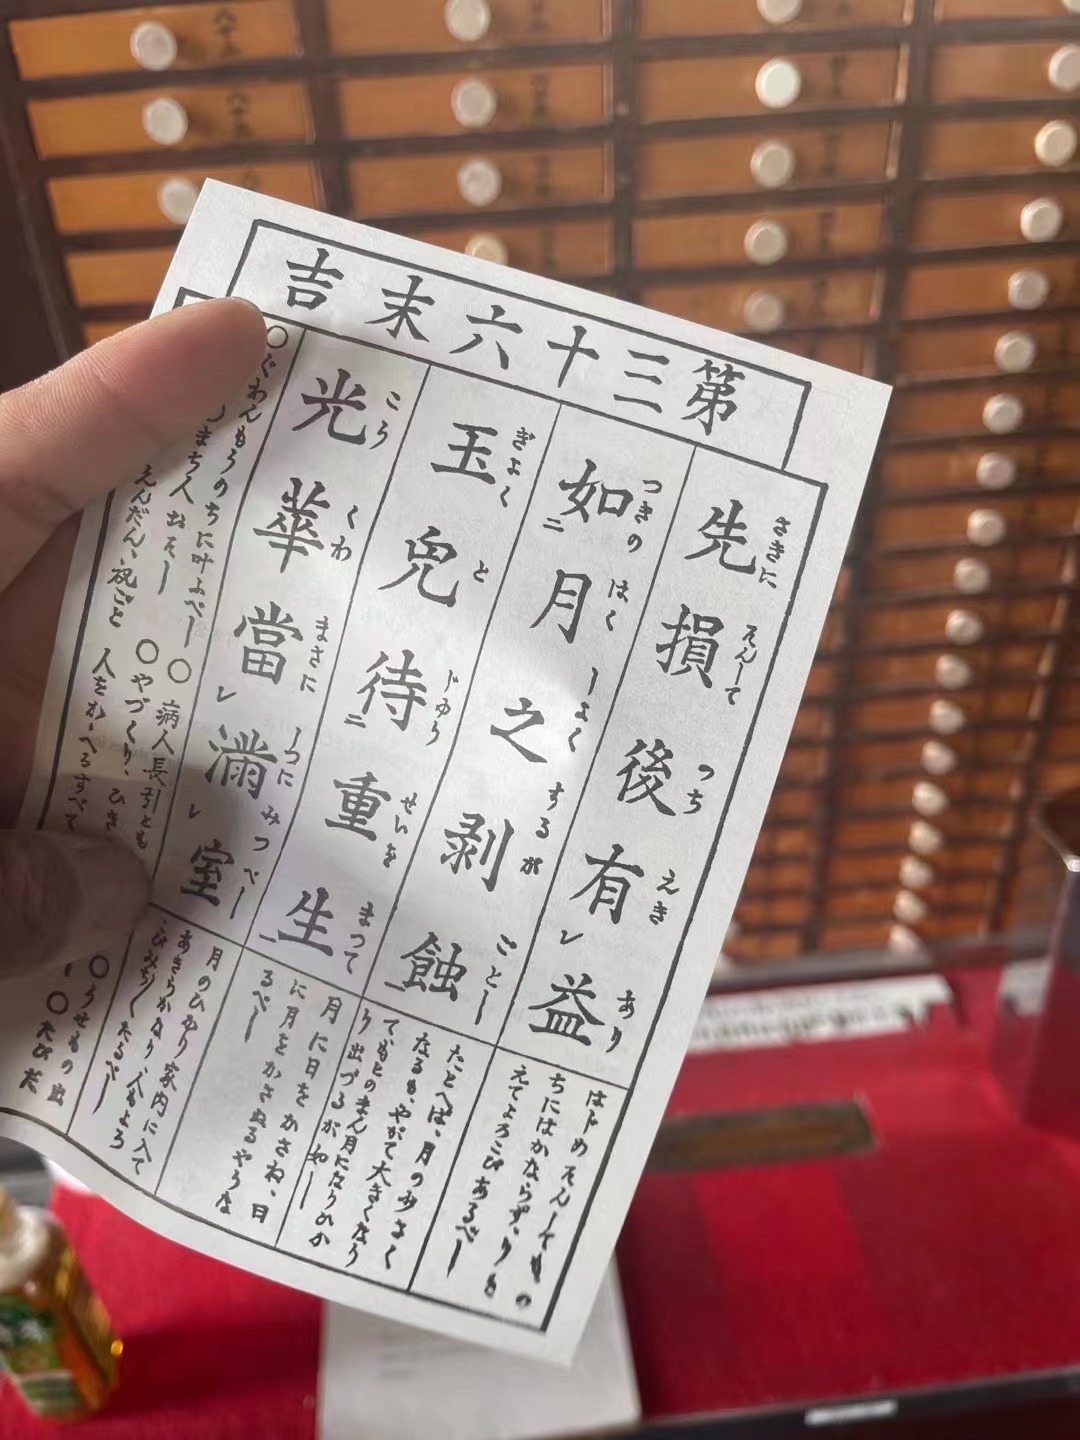 第三十六末吉
先損後有レ益
さきに そんーて のち えき あり
はドめそんーてもの
ちにはかならず、りを
えてよろこびあるべー
如二月之剥蝕一
つきの はくーよく するが ごとー
たとへば、月の少さく
なるも、やがて大きくなり
てもとのまん月になりかか
り出づるが如ー
玉兎待二重生一
ぎよく と じゆう せいを まつて
月に日をかさね、日
に月をかさぬるやうな
るべー
光華當レ満レ室
こう くわ まさに ーつに みつべー
月のひかり家内に入て
あきらかなり、人もよろ
こびみちくたるべー
○ぐわんもうのちに叶ふべー ○病人長引とも
まち人おそー ○やづくり、ひき
えんだん、祝ごと 人をかゝへるすべて
○うせもの出
○たびだ